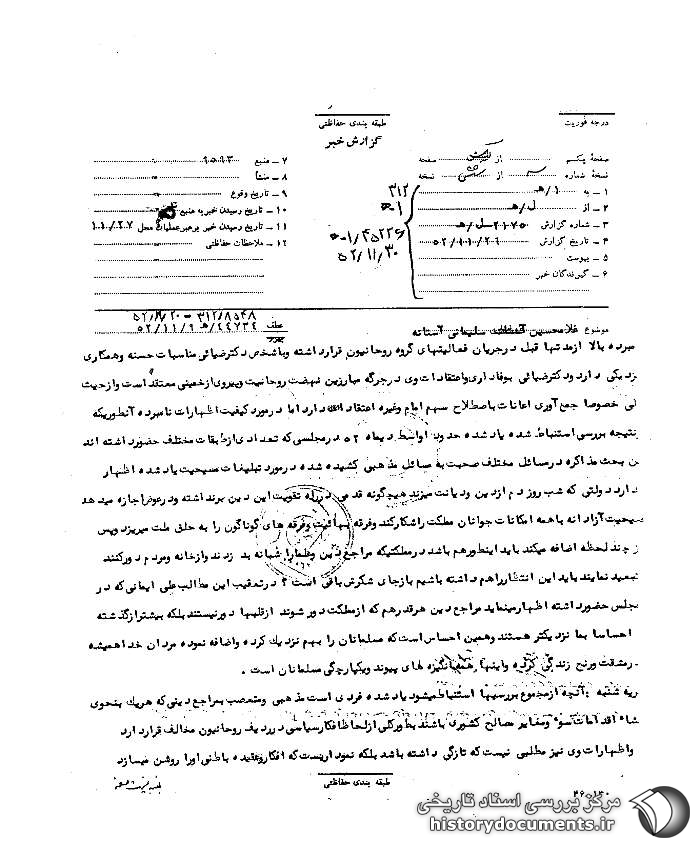 درجه فوریت
طبقه بندی حفاظتی
گزارش خبر
صفحهٔ یکم از صفحه
نسخهٔ شماره از نسخه
۱ ـ به ۳۱۲
۲ ـ از ل/ه‍
۳ ـ شماره گزارش
۴ ـ تاریخ گزارش
۵ ـ پیوست
۶ ـ گیرندگان خبر
۷ ـ منبع ۹۵۱۳
۸ ـ منشأ
۹ ـ تاریخ وقوع
۱۰ ـ تاریخ رسیدن خبر به منبع
۱۱ ـ تاریخ رسیدن خبر برهبر عملیات محل
۱۲ ـ ملاحظات حفاظتی
۵۲/۱۱/۳۰
موضوع غلامحسین سلیمانی آستانه
عطف ۵۲/۱۱/۹
مبرده بالا ازمدتها قبل درجریان فعالیتهای گروه روحانیون قرارداشته وباشخص دکترضیائی مناسبات حسنه وهمکاری
نزدیکی دارد ودکترضیائی بوفاداری واعتقادات وی درجرگه مبارزین نهضت روحانیت وپیروی ازخمینی معتقد است وازحیث
لی خصوصا جمع آوری اعانات باصطلاح سهم امام وغیره اعتقاد دارد اما درمورد کیفیت اظهارات نامبرده آنطوریکه
نتیجه بررسی استنباط شده یاد شده حدود اواسط دیماه ۵۲ درمجلسی که تعدادی ازطبقات مختلف حضورداشته اند
ن بحث مذاکره درمسائل مختلف صحبت به مسائل مذهبی کشیده شده درمورد تبلیغات مسیحیت یاد شده اظهار
دارد دولتی که شب روز دم ازدین ودیانت میزند هیچگونه قدمی درراه تقویت این دین برنداشته ودرعوض اجازه میدهد
مسیحیت آزادانه باهمه امکانات جوانان مملکت راشکارکند وفرقه بهائیت وفرقه های گوناگون را به حلق ملت میریزد وپس
ز چند لحظه اضافه میکند باید اینطورهم باشد درمملکتیکه مراجع دین وعلمارا شبانه بد زدند وازخانه ومردم دورکنند
تبعید نمایند باید این انتظارراهم داشته باشیم بازجای شکرش باقی است ؟ درتعقیب این مطالب علی ایمانی که در
مجلس حضورداشته اظهارمینماید مراجع دین هرقدرهم که ازمملکت دور شوند ازقلبها دورنیستند بلکه بیشترازگذشته
احساسا بما نزدیکتر هستند وهمین احساس است که مسلمانان را بهم نزدیك کرده واضافه نموده مردان خدا همیشه
رمشقت ورنج زندگی کرده واینها انگیزه های پیوند ویکپارچگی مسلمانان است .
ریه شنبه آنچه ازمجموع بررسیها استنباط میشود یاد شده فردی است مذهبی ومتعصب بمراجع دینی که هریك بنحوی
شاء اقدامات سوء ومغایر مصالح کشوری باشند بطورکلی ازلحاظ افکارسیاسی درردیف روحانیون مخالف قراردارد
واظهارات وی نیز مطلبی نیست که تازگی داشته باشد بلکه نموداریست که افکاروعقیده باطنی اورا روشن میسازد
طبقه بندی حفاظتی
مرکز بررسی اسناد تاریخی
historydocuments.ir